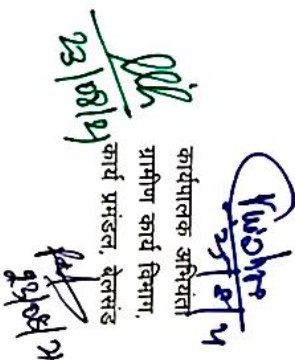 कार्यपालक अभियंता
ग्रामीण कार्य विभाग,
कार्य प्रमंडल, बेलसंड
23/08/21